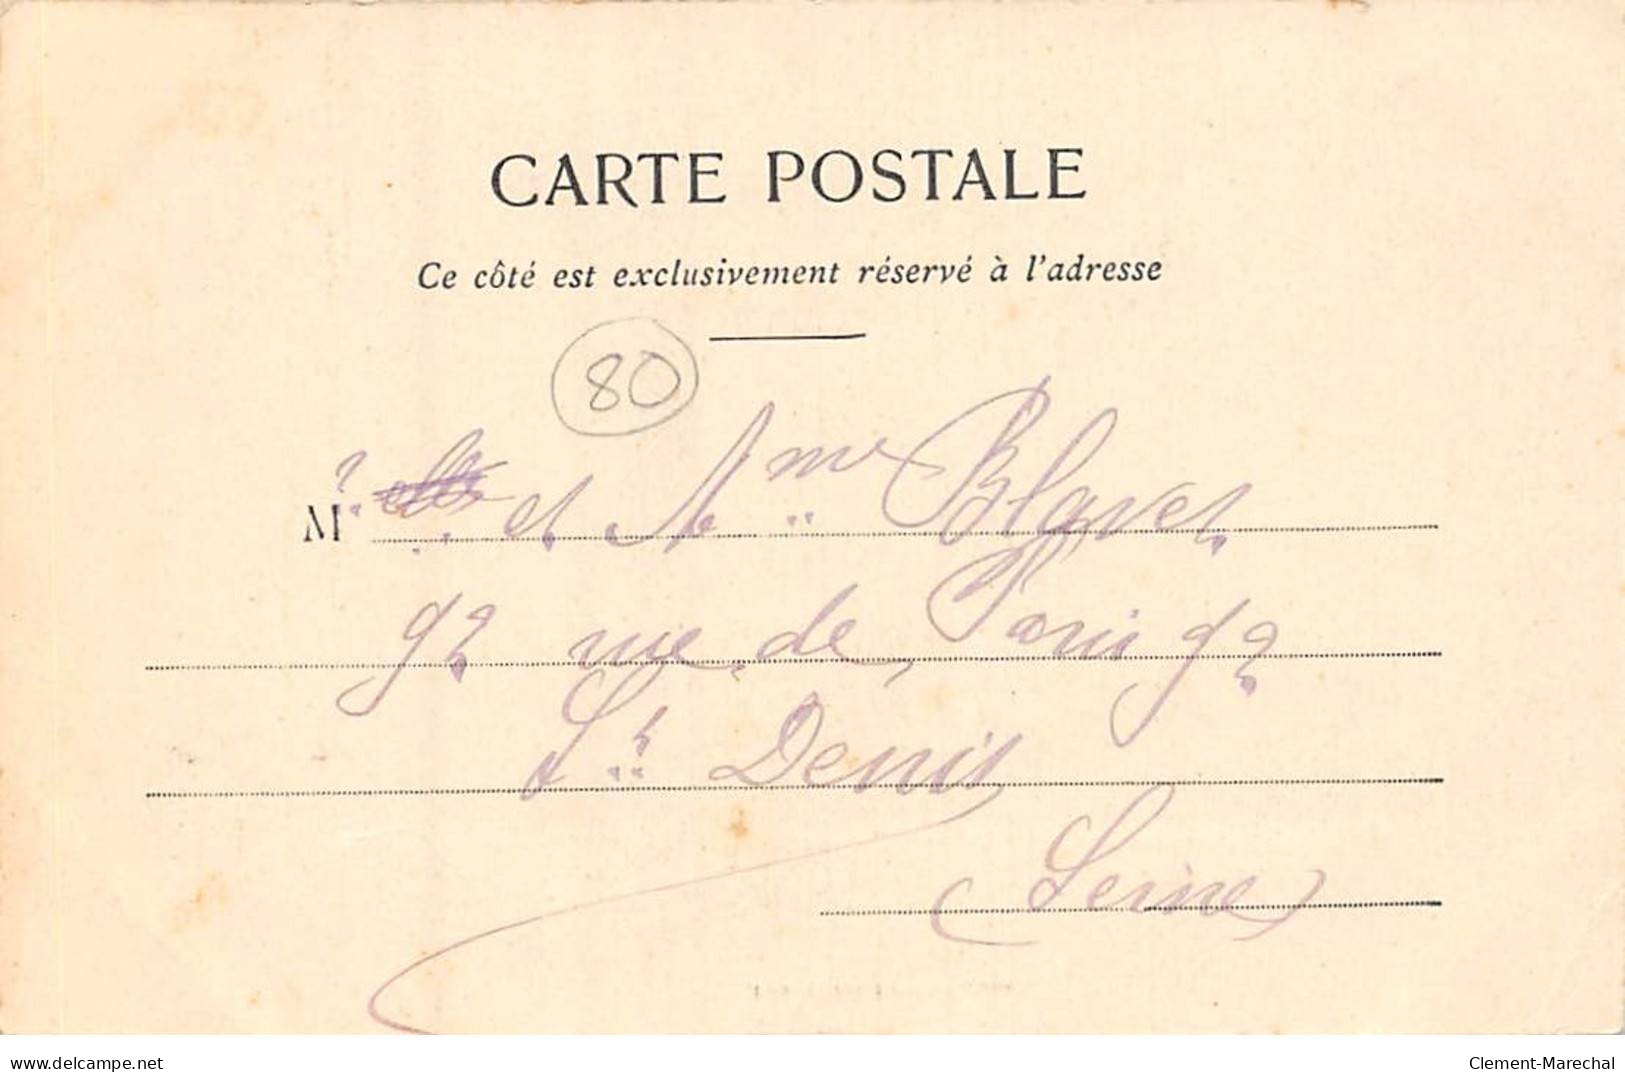 CARTE POSTALE
Ce côté est exclusivement réservé à l'adresse
80
Mr et Mme Blavet
92 rue de Paris 92
St Denis
Seine
www.delcampe.net
Clement-Marechal